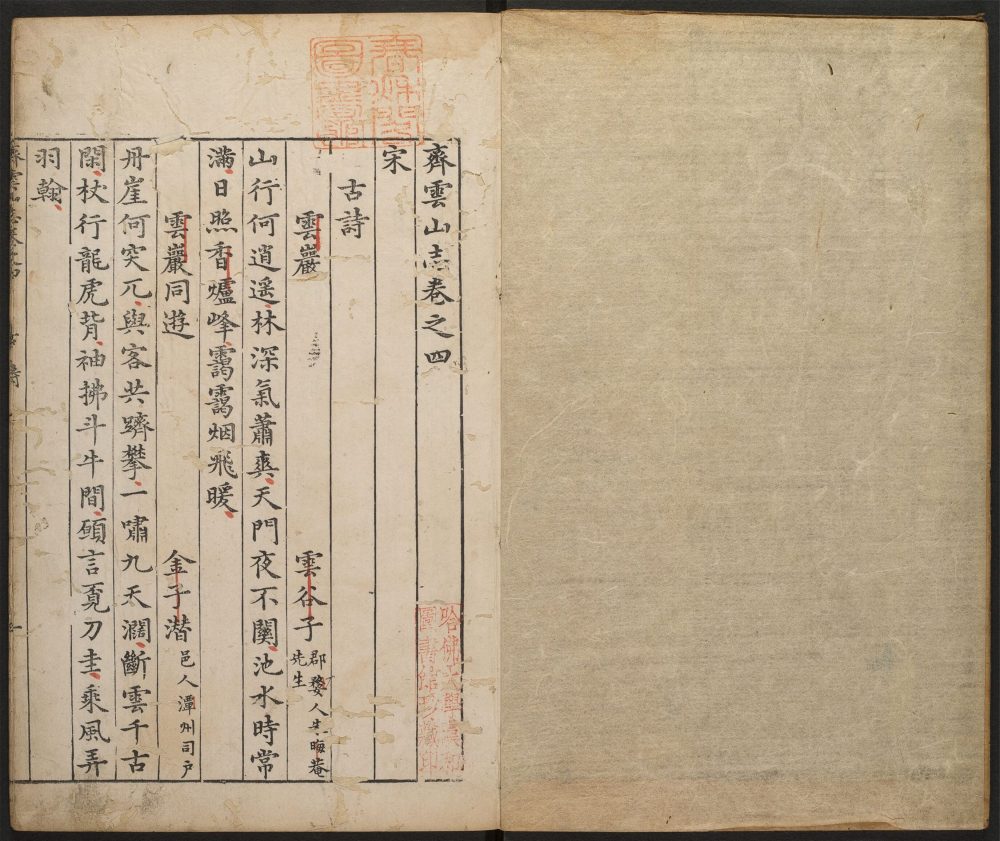 齊雲山志卷之四
宋
古詩
雲巖 雲谷子 郡婺人朱晦菴先生
山行何逍遥林深氣蕭爽天門夜不關池水時常
滿日照香爐峰靄靄烟飛暖
雲巖同遊 金子潛 邑人潭州司戶
丹崖何突兀與客共躋攀一嘯九天濶斷雲千古
閑杖行龍虎背袖拂斗牛間願言覔刀圭乘風弄
羽翰
齊雲山志卷之四 古詩 一
哈佛大學漢和圖書館珍藏印